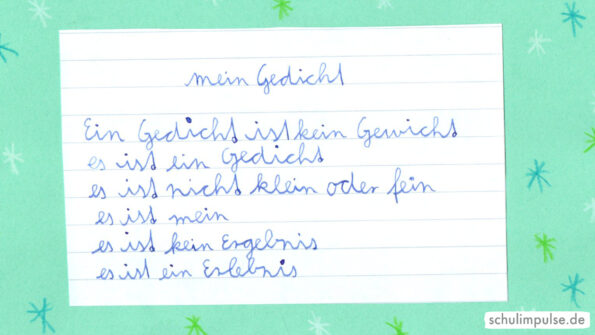 mein Gedicht
Ein Gedicht ist kein Gewicht
es ist ein Gedicht
es ist nicht klein oder fein
es ist mein
es ist kein Ergebnis
es ist ein Erlebnis
schulimpulse.de